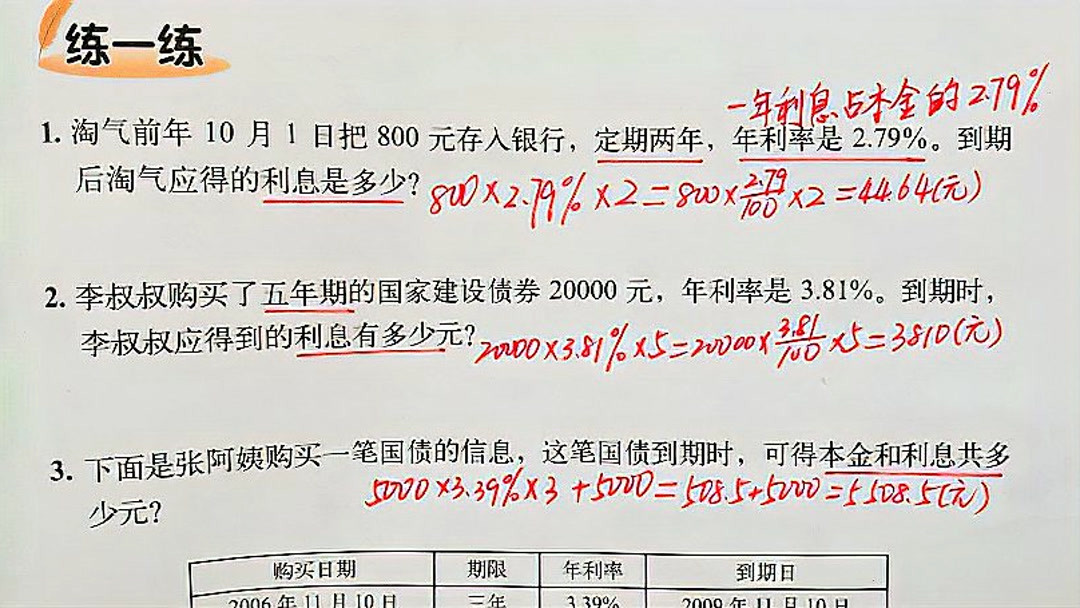 练一练
一年利息占本金的2.79%
1. 淘气前年 10 月 1 日把 800 元存入银行，定期两年，年利率是 2.79%。到期
后淘气应得的利息是多少？
800×2.79%×2=800×2.79/100×2=44.64(元)
2. 李叔叔购买了五年期的国家建设债券 20000 元，年利率是 3.81%。到期时，
李叔叔应得到的利息有多少元？
20000×3.81%×5=20000×3.81/100×5=3810(元)
3. 下面是张阿姨购买一笔国债的信息，这笔国债到期时，可得本金和利息共多
5000×3.39%×3+5000=508.5+5000=5508.5(元)
少元？
购买日期 期限 年利率 到期日
2006 年 11 月 10 日 三年 3.39% 2009 年 11 月 10 日